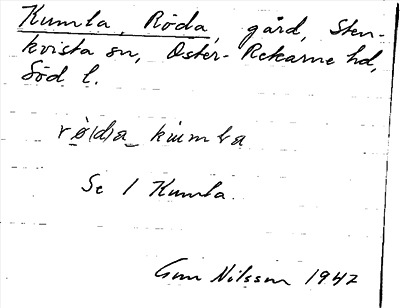 Kumla, Röda, gård, Sten-
kvista sn, Öster-Rekarne hd,
Söd l.
rö(d)a kumla
Se 1 Kumla
Gun Nilsson 1942